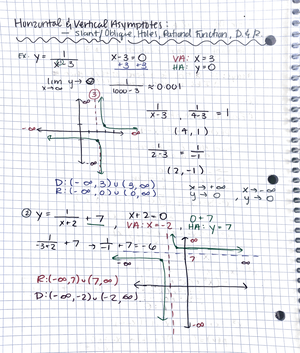 Horizontal & Vertical Asymptotes:
– Slant/Oblique, Holes, Rational Function, D. & R.
Ex. y = 1/(x-3) x-3=0 VA: x=3
+3 +3 HA: y=0
lim y→0 1/(1000-3) ≈ 0.001
x→∞
3 ∞
1/(x-3) , 1/(4-3) = 1
-∞ ∞
(4, 1)
1/(2-3) = 1/-1
-∞
(2, -1)
D: (-∞, 3) ∪ (3, ∞) x→+∞ x→-∞
R: (-∞, 0) ∪ (0, ∞) y→0 , y→0
② y = 1/(x+2) + 7 x+2=0 0+7
, VA: x=-2 , HA: y=7
1/(-3+2) + 7 → 1/-1 + 7 = -6
-∞ ∞ ∞
7
R: (-∞, 7) ∪ (7, ∞)
D: (-∞, -2) ∪ (-2, ∞)
-∞